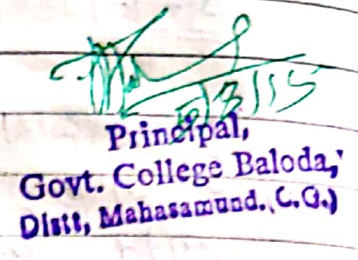 Principal,
Govt. College Baloda,
Distt, Mahasamund. (C.G.)